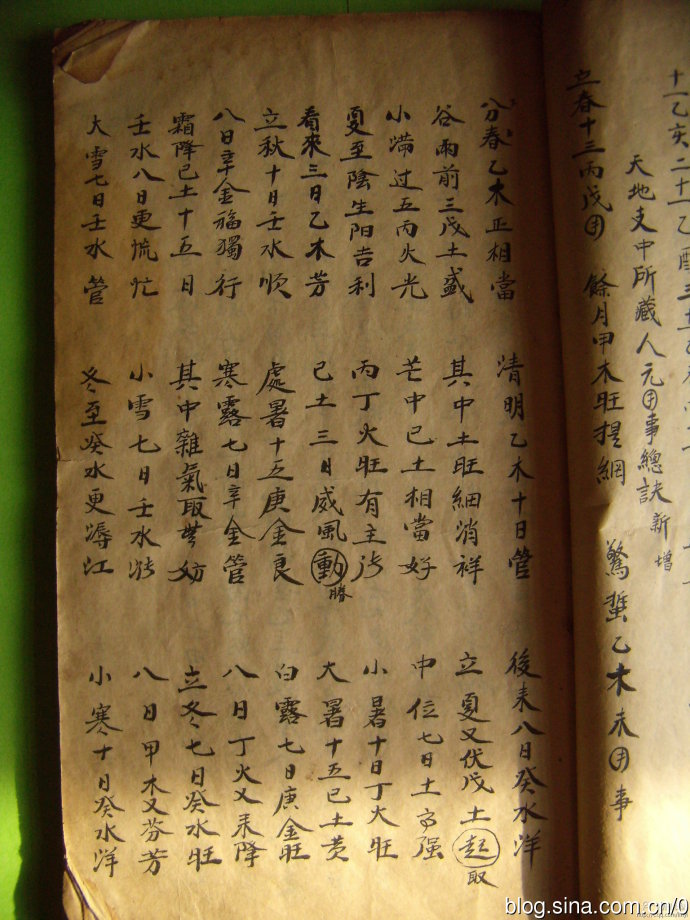 十一乙亥二十一乙酉三十
天地支中所藏人元用事總訣 新增
立春十三丙戊用 餘月甲木旺提綱 驚蟄乙木未用事
分春乙木正相當 清明乙木十日管 後来八日癸水洋
谷雨前三戊土盛 其中土旺細消祥 立夏又伏戊土起 取
小滿过五丙火光 芒中己土相當好 中位七日土高强
夏至陰生阳吉利 丙丁火旺有主 小暑十日丁火旺
看來三日乙木芳 己土三日威風動 勝 大暑十五己土黄
立秋十日壬水順 處暑十五庚金良 白露七日庚金旺
八日辛金福獨行 寒露七日辛金管 八日丁火又来降
霜降己土十五日 其中雜氣取無妨 立冬七日癸水旺
壬水八日更慌忙 小雪七日壬水 八日甲木又芬芳
大雪七日壬水管 冬至癸水更江 小寒十日癸水洋
blog.sina.com.cn/0